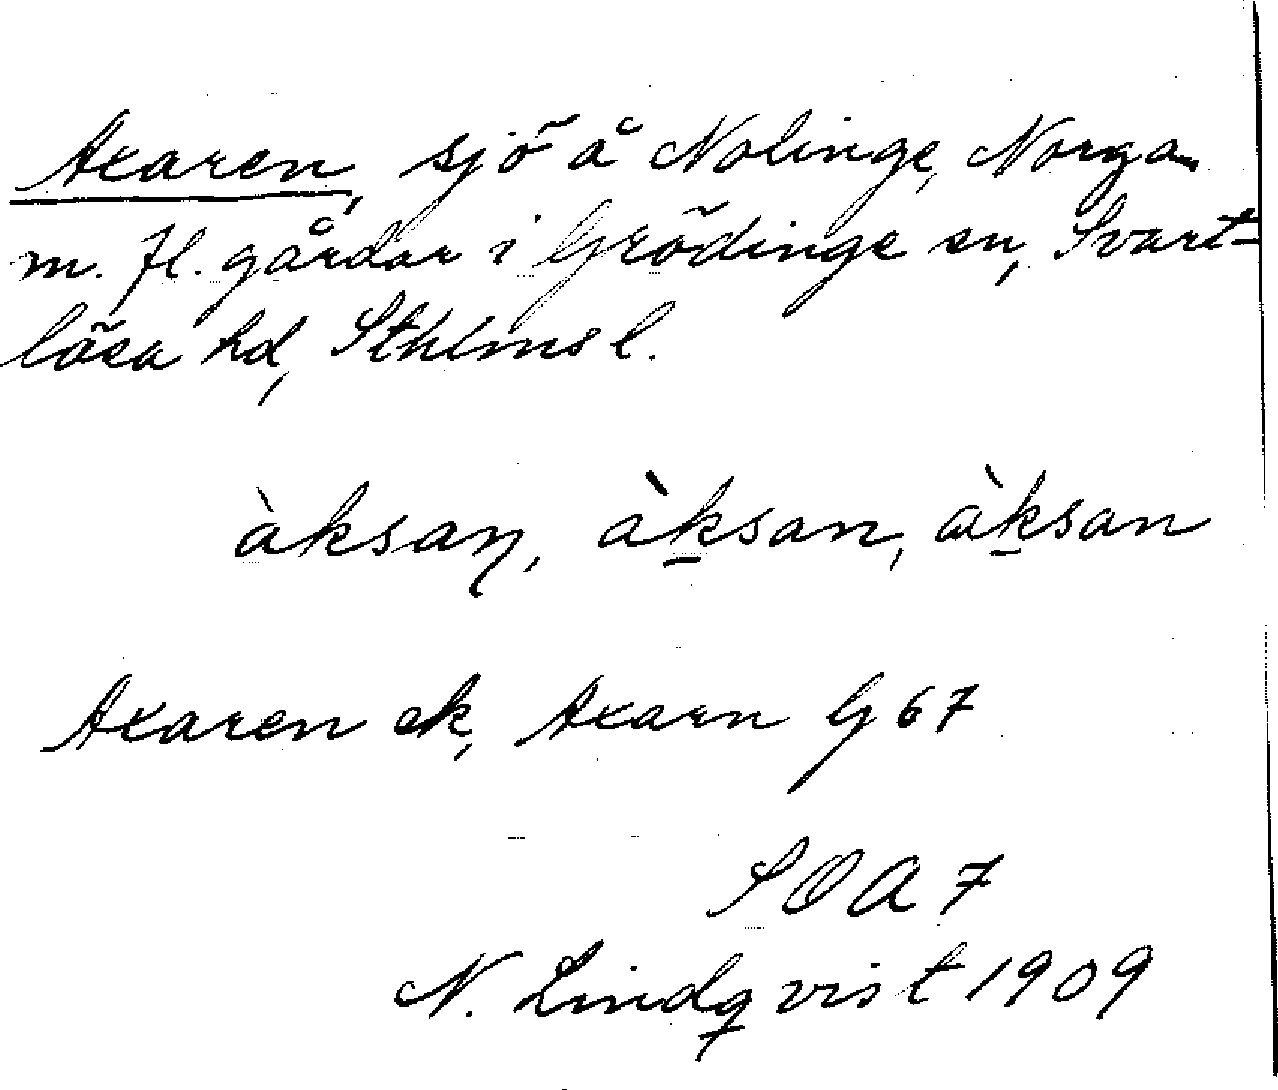 Axaren, sjö å Nolinge, Norga
m. fl. gårdar i Grödinge sn, Svart-
lösa hd, Sthlms l.
àksaŋ, àḵsan, àḵsan
Axaren ek, Axarn G 67
SOA 7
N. Lindqvist 1909